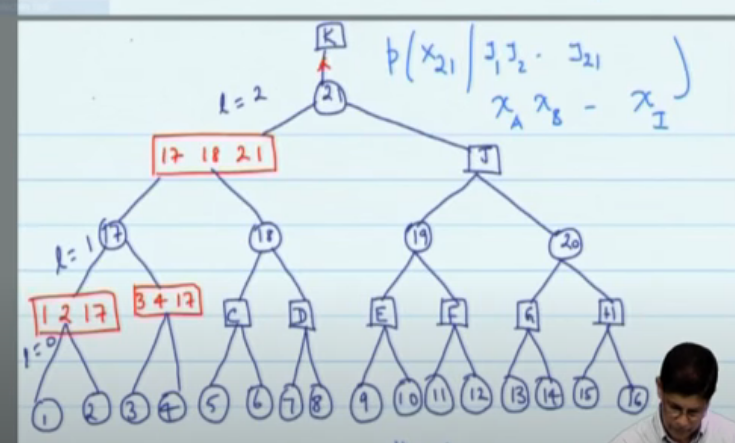 K
p(x21 | y1 y2 · y21
xA xB – xI)
21
l = 2
17 18 21
J
17
18
19
20
l = 1
1 2 17
3 4 17
C
D
E
F
G
H
l = 0
1
2
3
4
5
6
7
8
9
10
11
12
13
14
15
16